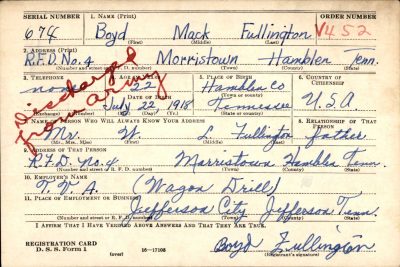 SERIAL NUMBER 1. NAME (Print) ORDER NUMBER
674 Boyd Mack Fullington V452
(First) (Middle) (Last)
2. ADDRESS (Print)
R.F.D. No. 4 Morristown Hamblen Tenn.
(Number and street or R. F. D. number) (Town) (County) (State)
3. TELEPHONE 4. AGE IN YEARS 5. PLACE OF BIRTH 6. COUNTRY OF CITIZENSHIP
none 22 Hamblen Co
DATE OF BIRTH (Town or county)
July 22 1918 Tennessee U.S.A
(Exchange) (Number) (Mo.) (Day) (Yr.) (State or country)
Discharged from Army
7. NAME OF PERSON WHO WILL ALWAYS KNOW YOUR ADDRESS 8. RELATIONSHIP OF THAT PERSON
Mr. W. L. Fullington father
(Mr., Mrs., Miss) (First) (Middle) (Last)
9. ADDRESS OF THAT PERSON
R.F.D. no. 4 Morristown Hamblen Tenn.
(Number and street or R. F. D. number) (Town) (County) (State)
10. EMPLOYER'S NAME
T. V. A. (Wagon Drill)
11. PLACE OF EMPLOYMENT OR BUSINESS
Jefferson City Jefferson Tenn.
(Number and street or R. F. D. number) (Town) (County) (State)
I AFFIRM THAT I HAVE VERIFIED ABOVE ANSWERS AND THAT THEY ARE TRUE.
REGISTRATION CARD
D. S. S. Form 1 (over) 16—17105 Boyd Fullington
(Registrant's signature)